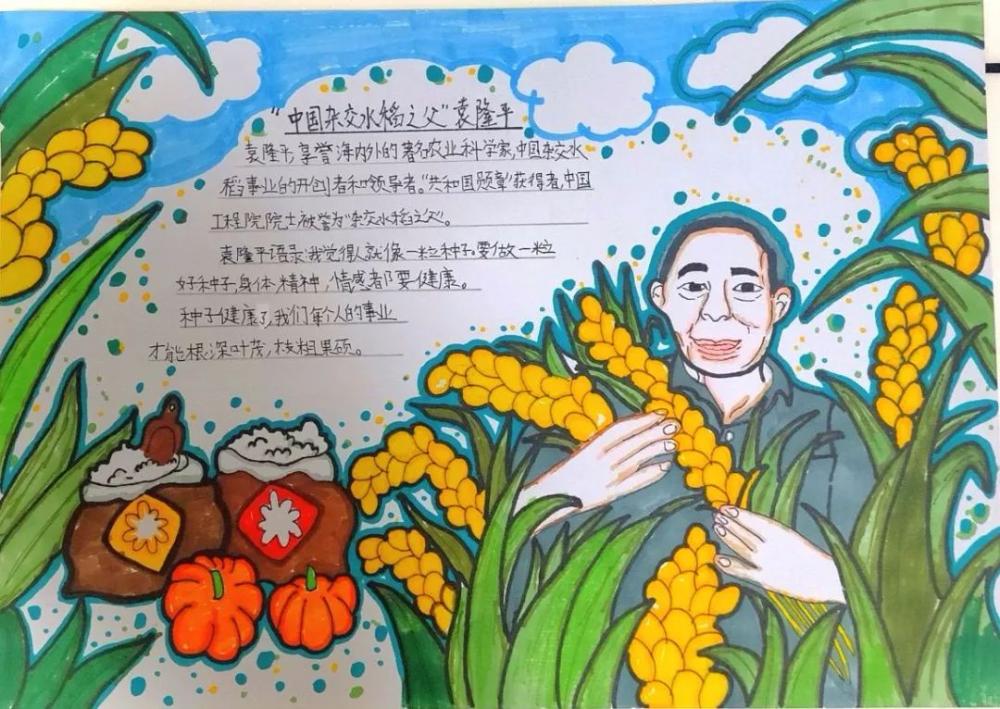 "中国杂交水稻之父"袁隆平
袁隆平,享誉海内外的著名农业科学家,中国杂交水
稻事业的开创者和领导者。"共和国勋章"获得者,中国
工程院院士被誉为"杂交水稻之父"。
袁隆平语录:我觉得人就像一粒种子。要做一粒
好种子,身体,精神,情感都要健康。
种子健康了,我们每个人的事业
才能根深叶茂,枝粗果硕。